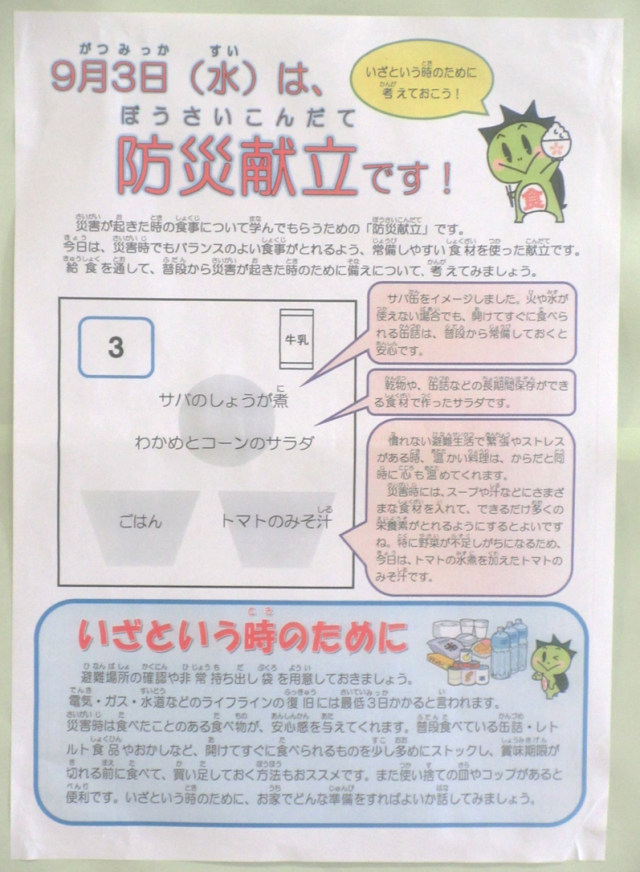 9月3日（水）は、
防災献立です！
いざという時のために
考えておこう！
食
災害が起きた時の食事について学んでもらうための「防災献立」です。
今日は、災害時でもバランスのよい食事がとれるよう、常備しやすい食材を使った献立です。
給食を通して、普段から災害が起きた時のために備えについて、考えてみましょう。
3
牛乳
サバのしょうが煮
わかめとコーンのサラダ
ごはん
トマトのみそ汁
サバ缶をイメージしました。火や水が
使えない場合でも、開けてすぐに食べら
れる缶詰は、普段から常備しておくと
安心です。
乾物や、缶詰などの長期間保存ができ
る食材で作ったサラダです。
慣れない避難生活で緊張やストレス
がある時、温かい料理は、からだと同
時に心も温めてくれます。
災害時には、スープや汁などにさまざ
まな食材を入れて、できるだけ多くの
栄養素がとれるようにするとよいです
ね。特に野菜が不足しがちになるため、
今日は、トマトの水煮を加えたトマトの
みそ汁です。
いざという時のために
避難場所の確認や非常持ち出し袋を用意しておきましょう。
電気・ガス・水道などのライフラインの復旧には最低3日かかると言われます。
災害時は食べたことのある食べ物が、安心感を与えてくれます。普段食べている缶詰・レト
ルト食品やおかしなど、開けてすぐに食べられるものを少し多めにストックし、賞味期限が
切れる前に食べて、買い足しておく方法もおススメです。また使い捨ての皿やコップがあると
便利です。いざという時のために、お家でどんな準備をすればよいか話してみましょう。